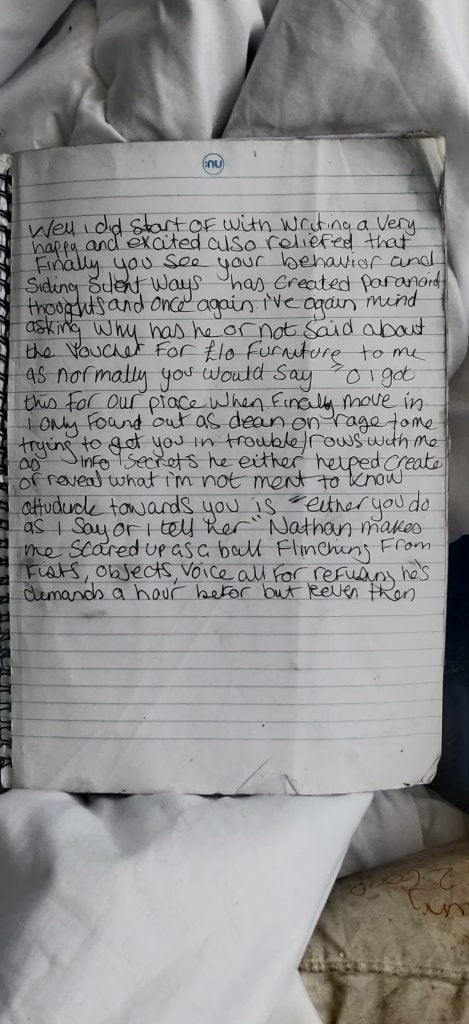 :nu
Well i did start of with writing a very
happy and excited also reliefed that
Finally you see your behavior and
Siding Silent ways has created paranoid
thoughts and once again i've again mind
asking why has he or not said about
the voucher For £10 Furniture to me
as normally you would say "O i got
this For our place when Finaly move in
i only Found out as dean on rage to me
trying to get you in trouble/rows with me
as info secrets he either helped create
or reveal what i'm not ment to know
towards you is "either you do
as I say or i tell her" Nathan makes
me scared up as a ball Flinching From
Fists, objects, voice all For refusing he's
demands a hour befor but then